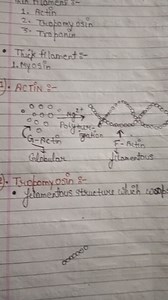 1. Actin
2. Tropomyosin
3. Troponin
• Thick filament :-
1. Myosin
1). ACTIN :-
Mg²⁺
Polymeri-
sation
G-Actin
F-Actin
Globular
filamentous
2). Tropomyosin :-
• filamentous structure which